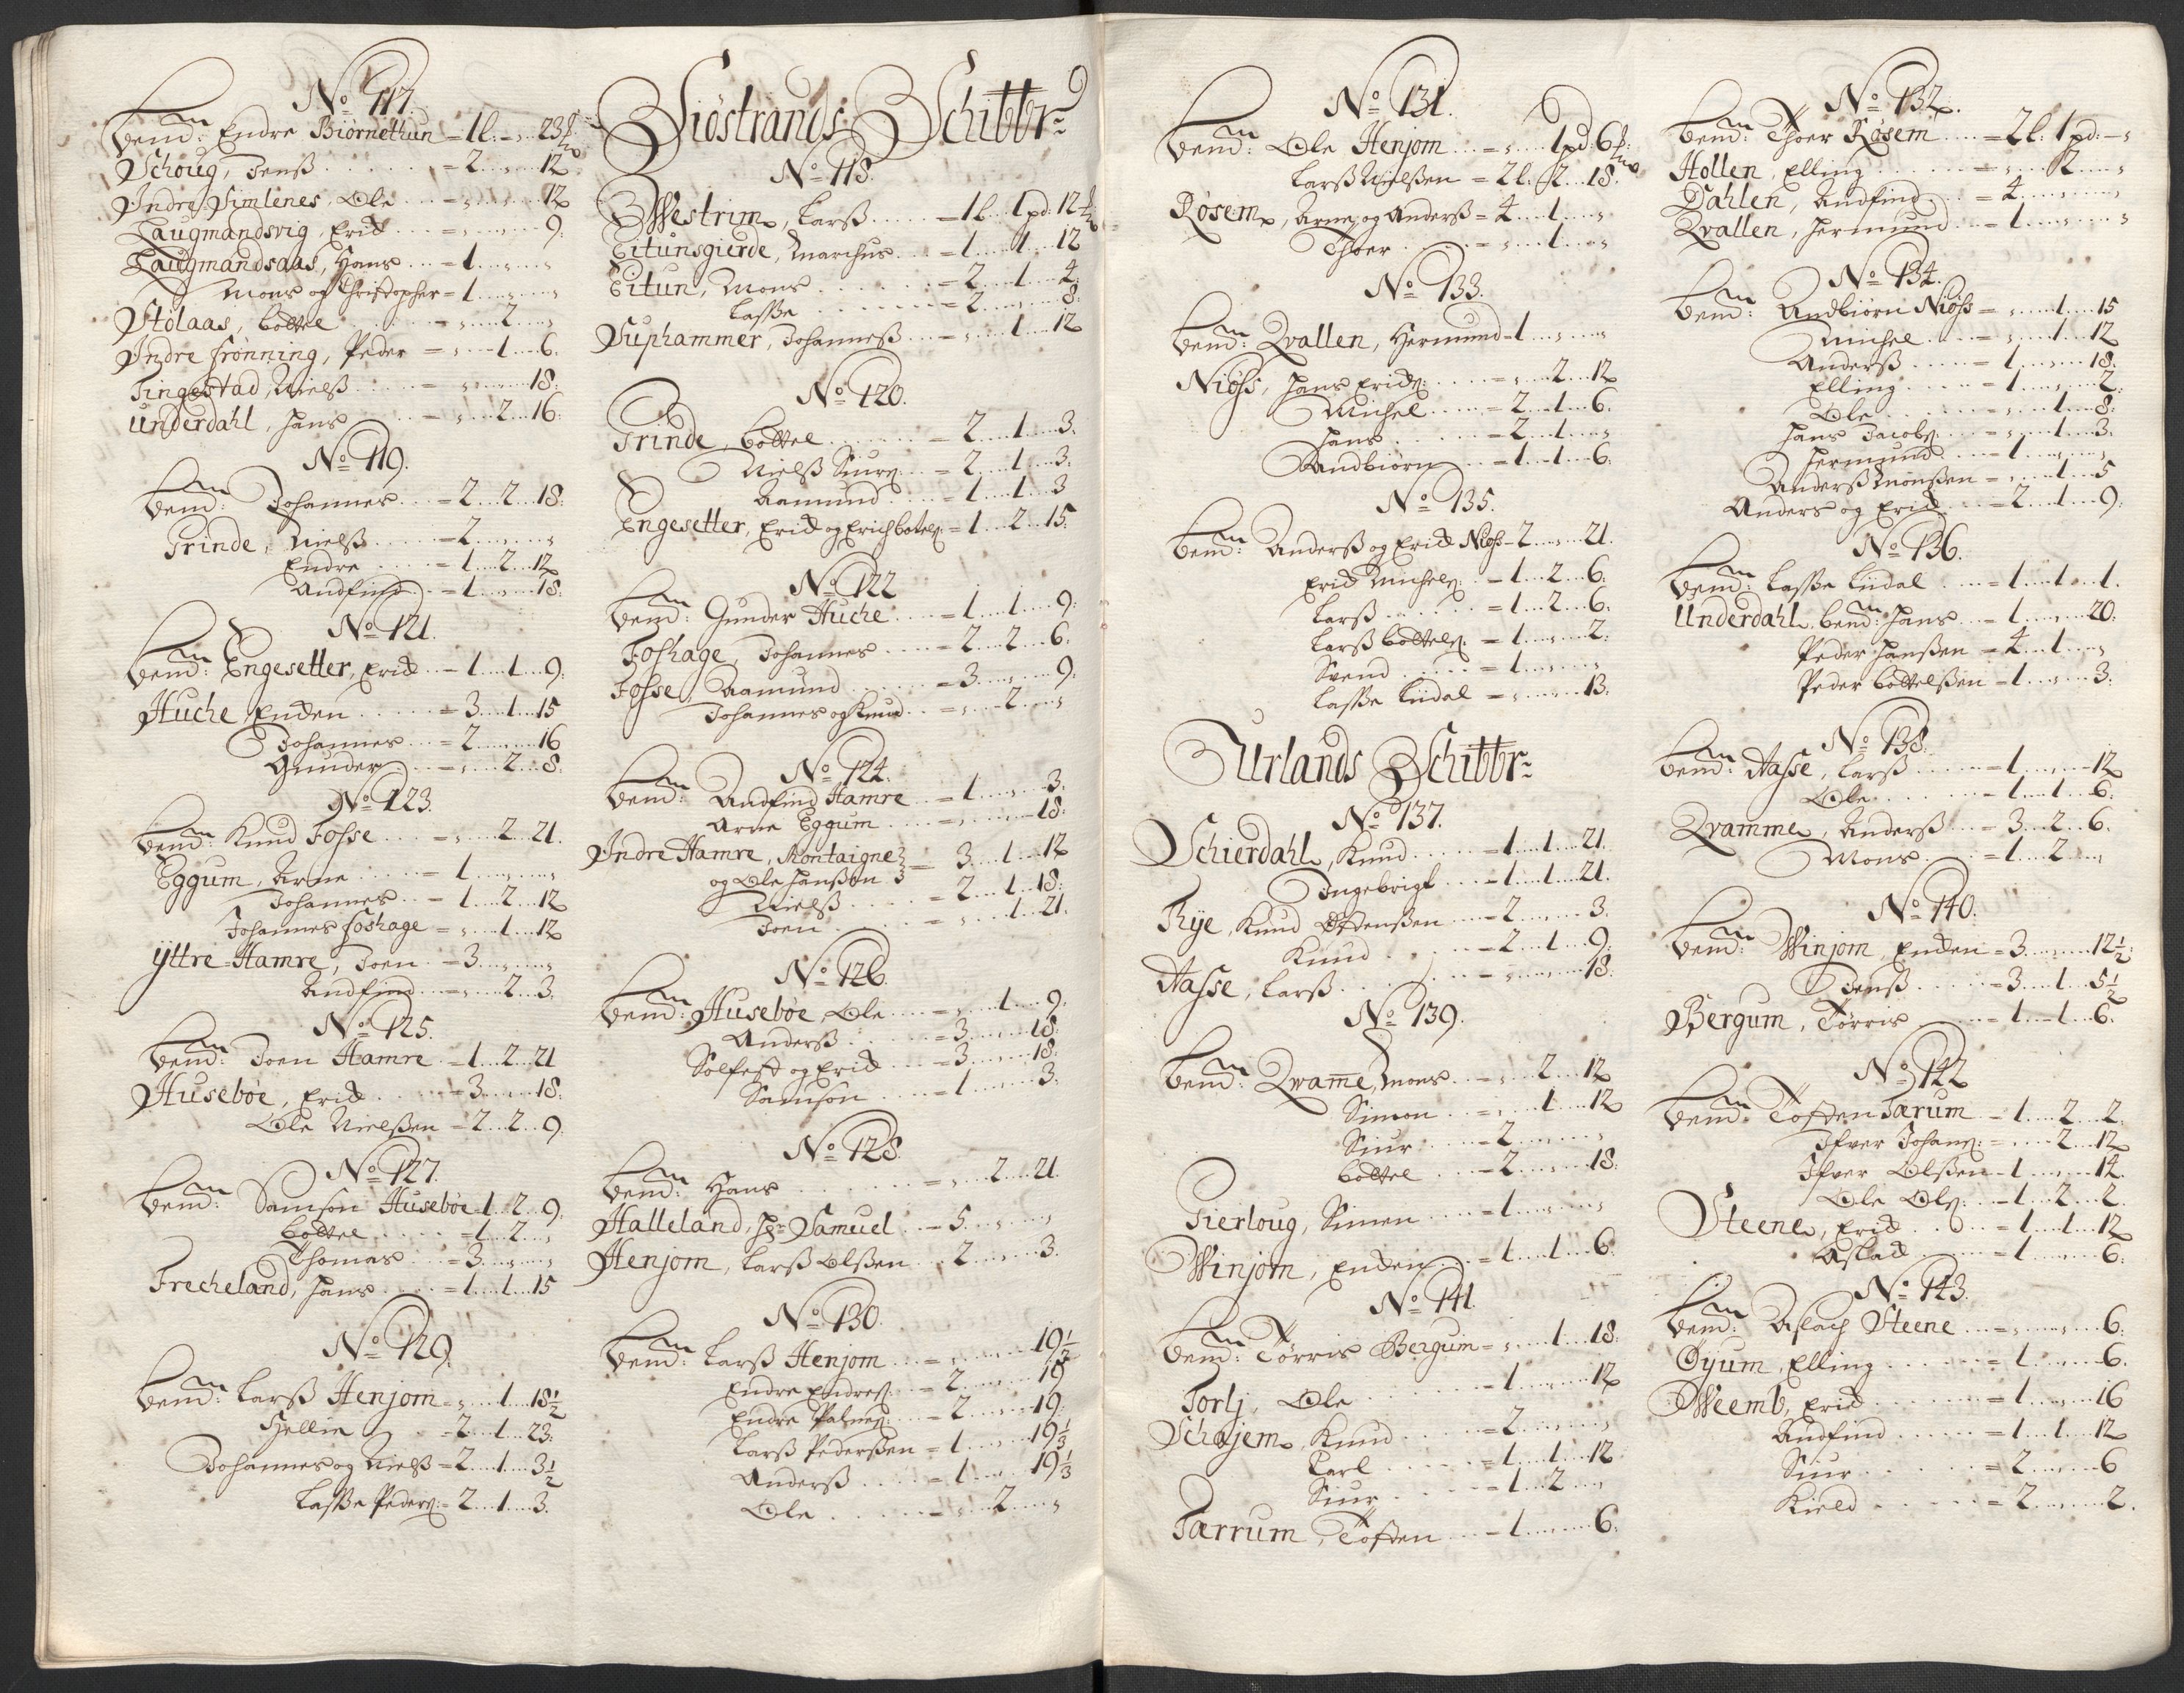 No 117.
bemd: Endre Biörnethun = 1l: „ 23 ₰
Schoug, Jenß = 2 „ 12
Indre Simlenes, Ole = „ „ 12
Laugmandsvig, Erick = „ „ 9.
Laugmandsaas, Hans = 1 „ „
Mons og Christopher = 1 „ „
Stölaas, Bottel = „ 2 „
Indre Frönning, Peder = „ 1 6.
Tingestad, Nielß = „ „ 18.
Underdahl, Hans = „ 2 16.
No 119.
bemd: Johannes = 2 2 18.
Grinde, Nielß = 2 „ „
Endre = 1 2 12
Andfind = 1 „ 18.
No 121.
bemd: Engesetter, Erick = 1 1 9.
Huche, Enden = 3 1 15
Johannes = 2 „ 16
Gunder = „ 2 8.
No 123.
bemd: Knud Fosse = „ 2 21.
Eggum, Arne = 1 „ „
Johannes = 1 2 12
Johannes Foshage = „ 1 12
Yttre Hamre, Joen = 3 „ „
Andfind = „ 2 3.
No 125.
bemd: Joen Hamre = 1 2 21
Husebøe, Erick = 3 „ 18.
Ole Nielßen = 2 2 9.
No 127.
bemd: Samson Husebøe 1 2 9.
Bottel = 1 2 „
Thomas = 3 „ „
Frecheland, Hans = 1 1 15
No 129.
bemd: Larß Henjom = „ 1 18½
Hellie = 2 1 23.
Johannes og Nielß = 2 1 3½
Lasse Peders: = 2 1 3.
Siöstrands Schibbr:
No 118.
Westrim, Larß = 1l 1pd 12½
Eitunsgierde, Marchus = 1 1 12
Eitun, Mons = 2 1 4.
Lasse = 2 „ 8.
Suphammer, Johanneß = „ 1 12
No 120.
Grinde, Bottel = 2 1 3.
Nielß Siurs: = 2 1 3.
Aamund = 1 1 3
Engesetter, Erick og Erich Botels: = 1 2 15.
No 122
bemd: Gunder Huche = 1 1 9.
Foshage, Johannes = 2 2 6.
Fosse, Aamund = 3 „ 9.
Johannes og Knud = „ 2 „
No 124.
bemd: Andfind Hamre = 1 „ 3.
Arne Eggum = „ „ 18.
Indre Hamre, Montaigne = 3 1 12
og Ole Hanßen
Nielß = 2 1 18.
Joen = „ 1 21.
No 126.
bemd: Husebøe, Ole = „ 1 9.
Anderß = 3 „ 18.
Solfest og Erick = 3 „ 18.
Samson = 1 „ 3.
No 128.
bemd: Hans = „ 2 21.
Halleland, Hr: Samuel = 5 „ „
Henjom, Larß Olßen 2 „ 3.
No 130.
bemd: Larß Henjom = „ „ 19⅓
Endre Endres: = 2 „ 19
Endre Palmes: = 2 „ 19.
Larß Pederßen = 1 „ 19⅓
Anderß = 1 „ 19⅓
Ole = „ 2 „
No 131.
bemd: Ole Henjom = „ 1pd: 6
Larß Nielßen = 2l: 2 18.
Røsem, Arne og Anderß = 4 1 „
Thoer = „ 1 „
No 133.
bemd: Qvallen, Hermund = 1 „ „
Niøss, Hans Ericks: = „ 2 12
Michel = 2 1 6.
Hans = 2 1 „
Andbiørn = 1 1 6.
No 135.
bemd: Anderß og Erick Niøss = 2 „ 21.
Erick Michels: = 1 2 6.
Larß = 1 2 6.
Larß Bottels: = 1 „ 2.
Svend = 1 „ „
Lasse Liidal = „ „ 13.
Urlands Schibbr:
No 137.
Schierdahl, Knud = 1 1 21.
Ingebrigt = 1 1 21.
Rye, Knud Østenßen = 2 „ 3.
Knud = 2 1 9.
Aasse, Larß = „ „ 18.
No 139.
bemd: Qvam̄e, Mons = „ 2 12
Simon = „ 1 12
Siur = 2 „ „
Bottel = 2 „ 18.
Gierloug, Simen = 1 „ „
Winjom, Enden = 1 1 6.
No 141.
bemd: Tørris Bergum = „ 1 18.
Forlj, Ole = 1 „ 12
Schajem, Knud = 2 „ „
Carl = 1 1 12
Siur = 1 2 „
Tærrum, Tosten = 1 „ 6.
No 132.
bemd: Thoer Røsem = 2l: 1pd: „
Hollen, Elling = „ 2 „
Dahlen, Andfind = 4 „ „
Qvallen, Hermund = 1 „ „
No 134.
bemd: Andbiørn Niøss = „ 1 15
Michel = „ 1 12
Anderß = 1 „ 18.
Elling = 1 „ 2.
Ole = „ 1 8.
Hans Jacobs: = „ 1 3.
Hermund = 1 „ „
Anderß Monßen = „ 1 5
Anders og Erick = 2 1 9.
No 136.
bemd: Lasse Liidal = 1 1 1.
Underdahl, bemd: Hans = 1 „ 20.
Peder Hanßen = 4 1 „
Peder Bottelßen = 1 „ 3.
No 138.
bemd: Aasse, Larß = 1 „ 12
Ole = 1 1 6.
Qvamme, Anderß = 3 2 6.
Mons = 1 2 „
No 140.
bemd: Winjom, Enden = 3 „ 12½
Jenß = 3 1 5½
Bergum, Tørris = 1 1 6.
No 142
bemd: Tosten Tærum = 1 2 2.
Ifver Johans: = „ 2 12
Ifver Olßen = 1 „ 12.
Ole Ols: = 1 2 2.
Steene, Erick = 1 1 12
Aslack = 1 „ 6.
No 143.
bemd: Aslach Steene = „ „ 6.
Øyum, Elling = 1 „ 6.
Weemb, Erick = 1 „ 16
Andfind = 1 1 12
Siur = 2 „ 6
Kield = 2 „ 2.